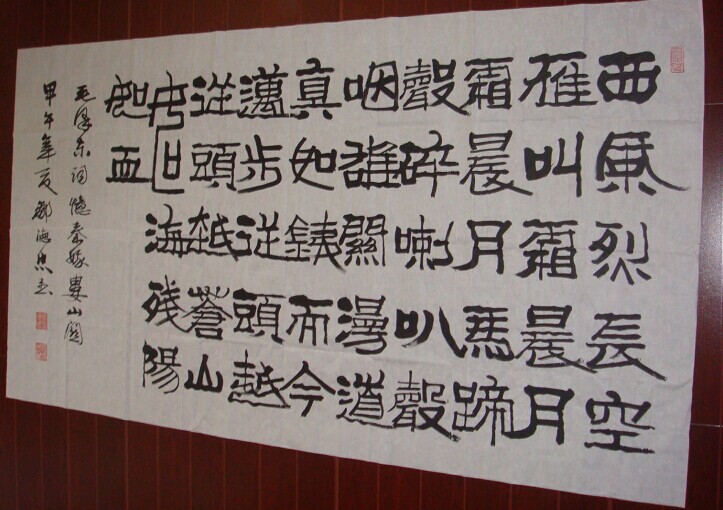 西風烈長空
雁叫霜晨月
霜晨月馬蹄
聲碎喇叭聲
咽雄關漫道
真如鐵而今
邁步從頭越
從頭越蒼山
海残陽
如血
毛澤东词憶秦娥婁山關
甲午年夏